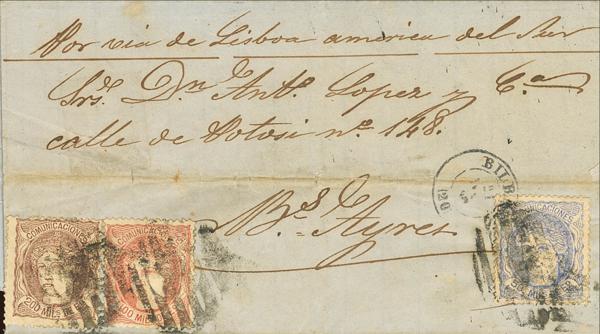 Por via de Lisboa america del Sur
Srs. Dn. Anto. Lopez y Ca.
calle de Potosi no. 148.
Bs. Ayres
BILB
(20)
COMUNICACIONES
200 MILS DE
COMUNICACIONES
100 MILS
COMUNICACIONES
50 MILS